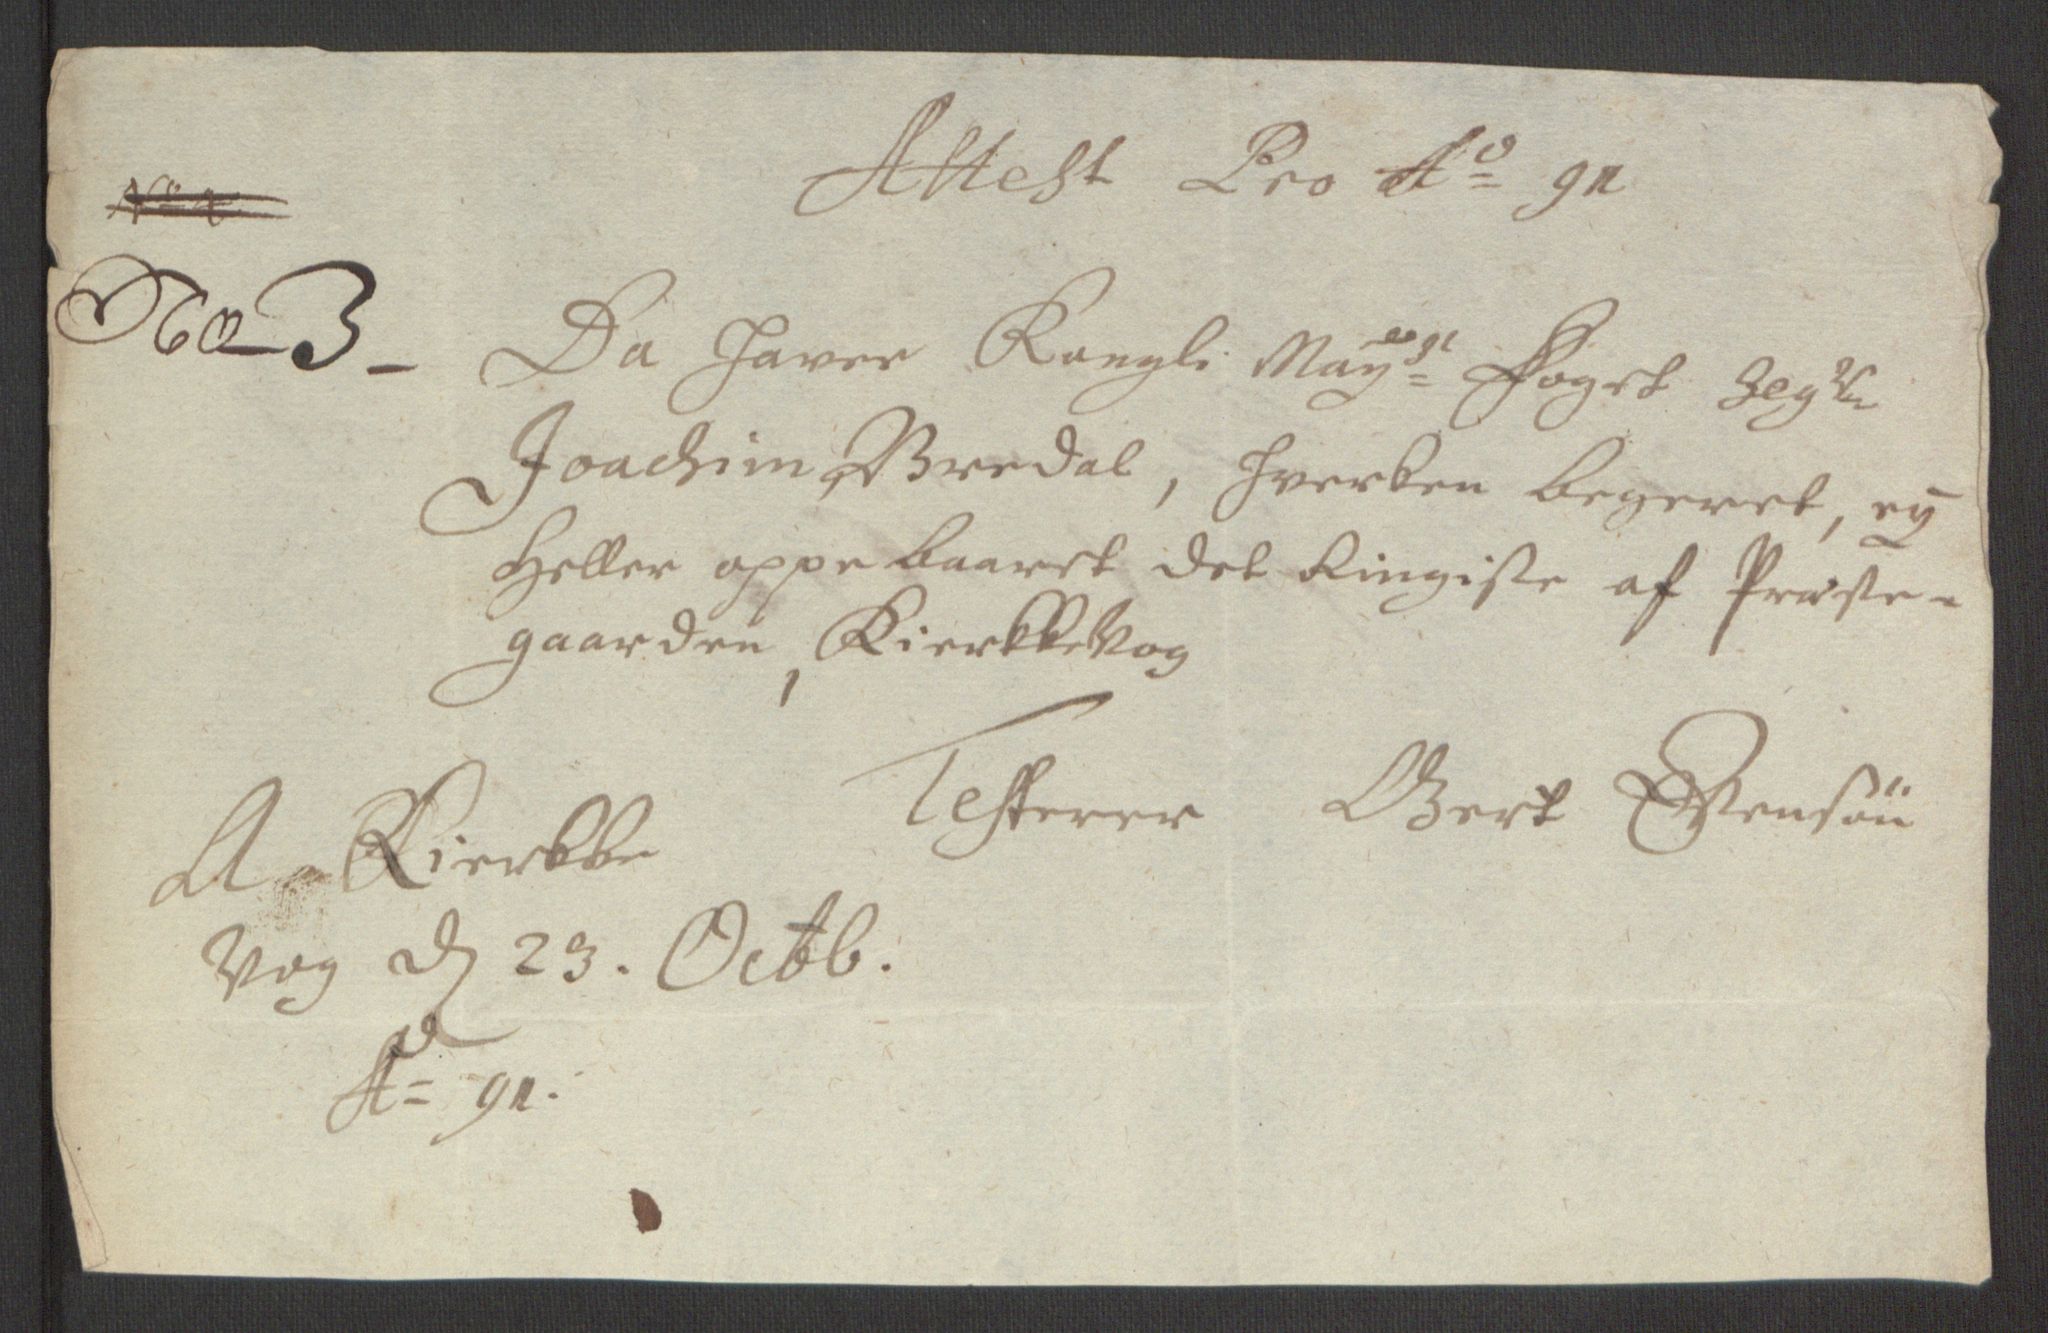 Attest Pro Aō 91
No 3
Da haver Kongli May:tz Fogett
Joachim Bredal, hverken begeret, eÿ
heller oppebaaret det ringiste af Præste-
gaarden, KierkkeVog
Testerer Gert Stensön
A Kierkke
Vog d 23. Octb.
Aō 91.